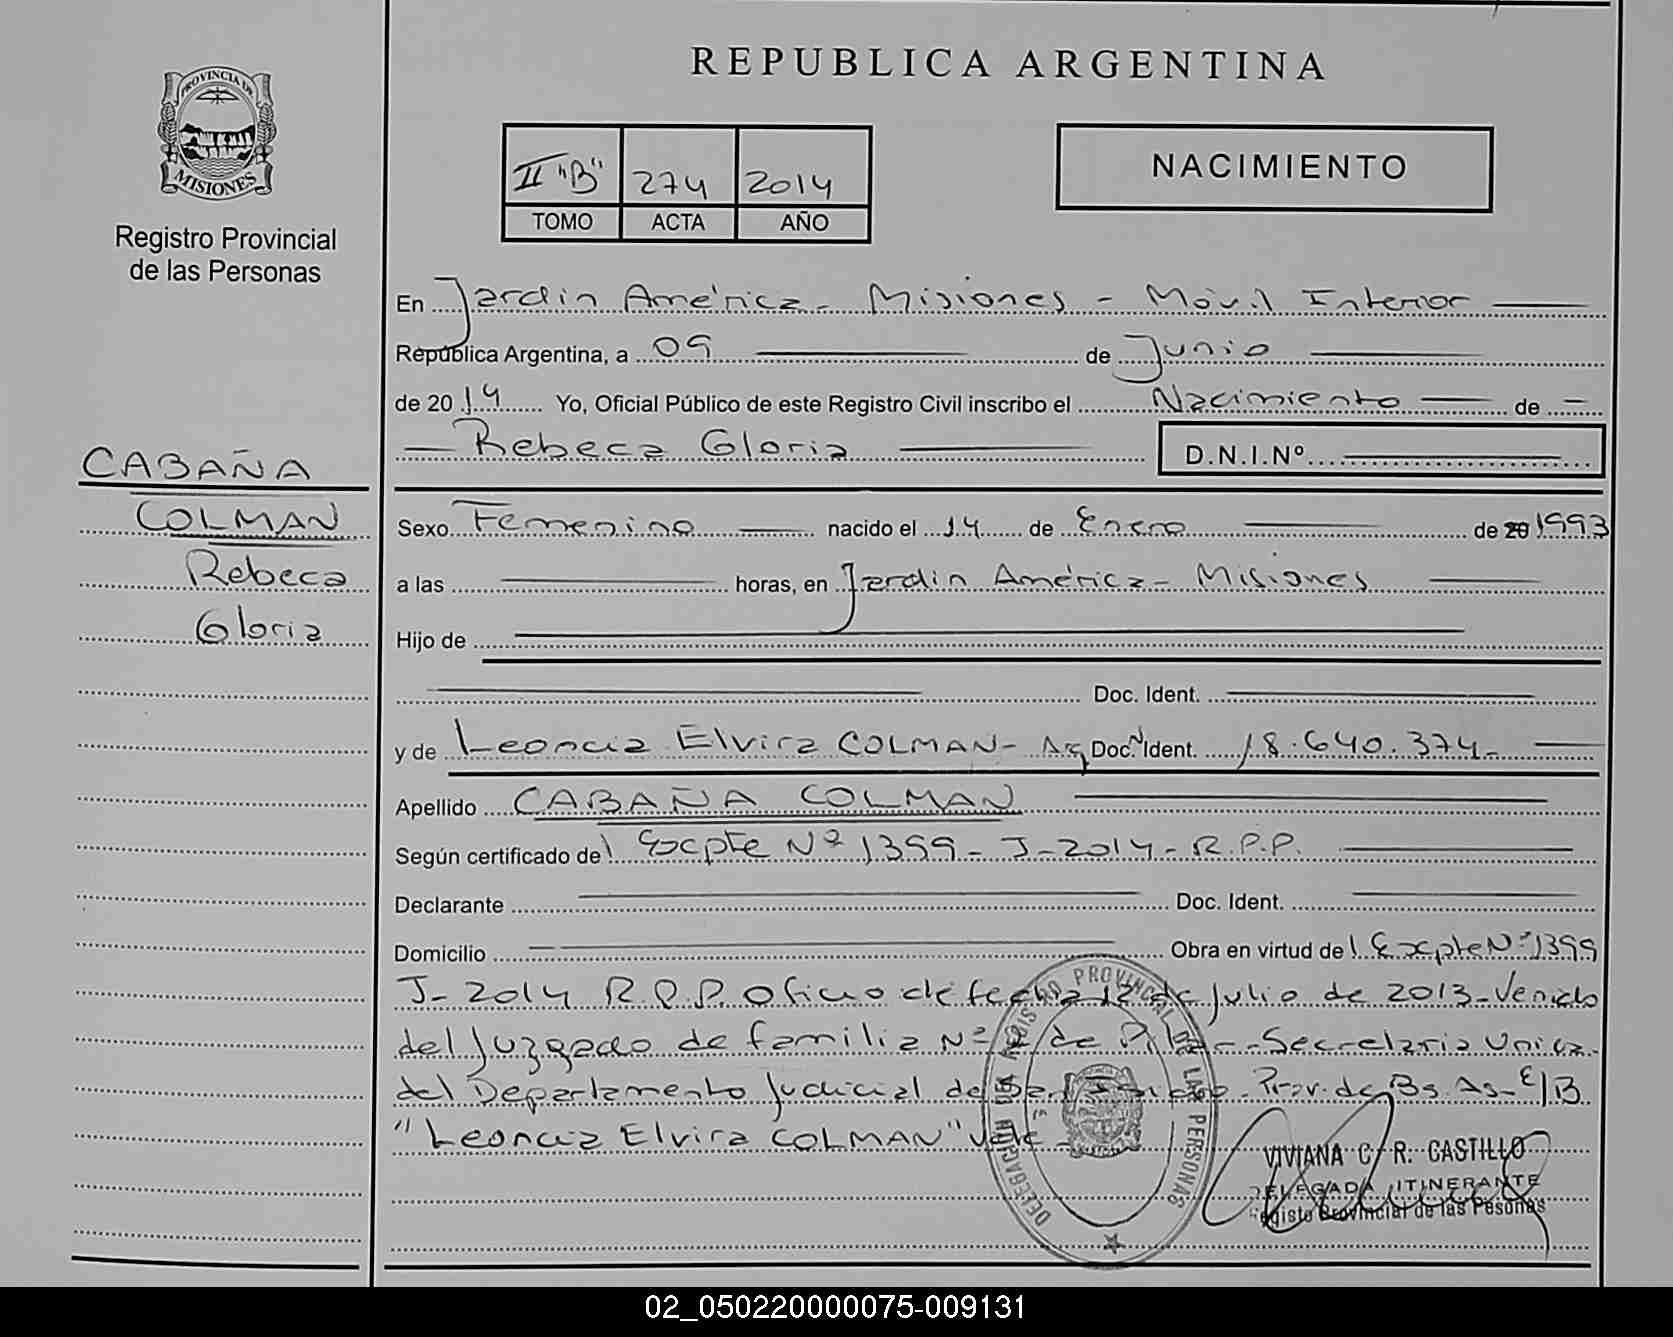 REPUBLICA ARGENTINA
PROVINCIA DE
MISIONES
Registro Provincial
de las Personas
II "B" 274 2014
TOMO ACTA AÑO
NACIMIENTO
En Jardin América - Misiones - Móvil Interior
República Argentina, a 09 de Junio
de 2014 Yo, Oficial Público de este Registro Civil inscribo el Nacimiento de
Rebeca Gloria D.N.I.Nº
CABAÑA
COLMAN
Rebeca
Gloria
Sexo Femenino nacido el 14 de Enero de 20 1993
a las horas, en Jardin América - Misiones
Hijo de
Doc. Ident.
y de Leoncia Elvira COLMAN - Doc. Ident. 18.640.374-
Apellido CABAÑA COLMAN
Según certificado del Excpte Nº 1399 - J - 2014 - R.P.P.
Declarante Doc. Ident.
Domicilio Obra en virtud del Excpte Nº 1399
J - 2014 R.P.P. Oficio de fecha 12 de Julio de 2013 - Venido
del Juzgado de familia Nº de Pilar - Secretaria Unica
del Departamento Judicial de San Isidro Prov. de Bs. As - E/B
"Leoncia Elvira COLMAN" Vale
REGISTRO PROVINCIAL DE LAS PERSONAS
DELEGACION
VIVIANA C. R. CASTILLO
DELEGADA ITINERANTE
Registo Provincial de las Pesonas
02_050220000075-009131